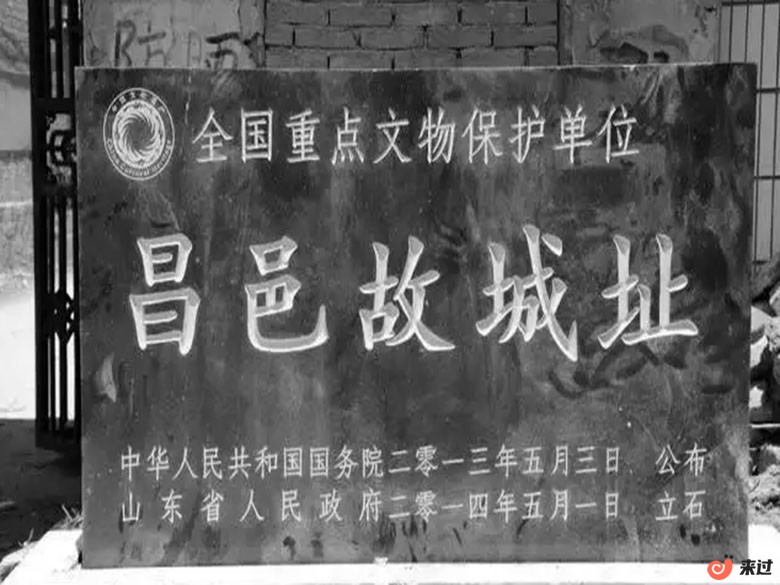 全国重点文物保护单位
昌邑故城址
中华人民共和国国务院二零一三年五月三日 公布
山东省人民政府二零一四年五月一日 立石
来过